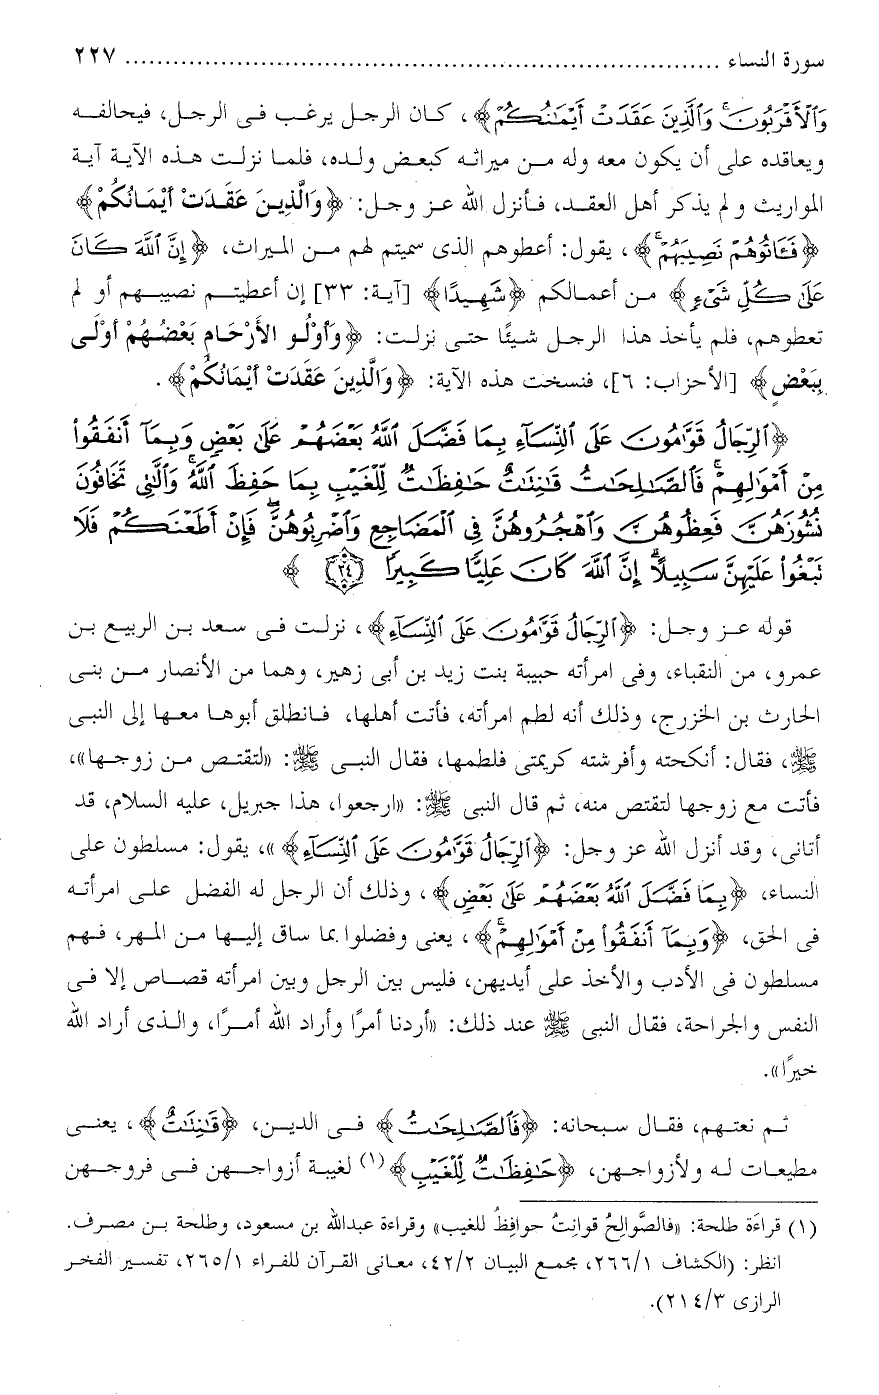 سورة النساء ........................................................................ ٢٢٧
وَٱلْأَقْرَبُونَ ۚ وَٱلَّذِينَ عَقَدَتْ أَيْمَٰنُكُمْ﴾، كان الرجل يرغب فى الرجل، فيحالفه
ويعاقده على أن يكون معه وله من ميراثه كبعض ولده، فلما نزلت هذه الآية آية
المواريث ولم يذكر أهل العقد، فأنزل الله عز وجل: ﴿وَالَّذِينَ عَقَدَتْ أَيْمَانُكُمْ﴾
﴿فَـَٔاتُوهُمْ نَصِيبَهُمْ ۚ﴾، يقول: أعطوهم الذى سميتم لهم من الميراث، ﴿إِنَّ ٱللَّهَ كَانَ
عَلَىٰ كُلِّ شَىْءٍ﴾ من أعمالكم ﴿شَهِيدًا﴾ [آية: ٣٣] إن أعطيتم نصيبهم أو لم
تعطوهم، فلم يأخذ هذا الرجل شيئًا حتى نزلت: ﴿وَأُوْلُو الأَرْحَامِ بَعْضُهُمْ أَوْلَى
بِبَعْضٍ﴾ [الأحزاب: ٦]، فنسخت هذه الآية: ﴿وَالَّذِينَ عَقَدَتْ أَيْمَانُكُمْ﴾.
﴿ٱلرِّجَالُ قَوَّٰمُونَ عَلَى ٱلنِّسَآءِ بِمَا فَضَّلَ ٱللَّهُ بَعْضَهُمْ عَلَىٰ بَعْضٍ وَبِمَآ أَنفَقُواْ
مِنْ أَمْوَٰلِهِمْ ۚ فَٱلصَّٰلِحَٰتُ قَٰنِتَٰتٌ حَٰفِظَٰتٌ لِّلْغَيْبِ بِمَا حَفِظَ ٱللَّهُ ۚ وَٱلَّٰتِى تَخَافُونَ
نُشُوزَهُنَّ فَعِظُوهُنَّ وَٱهْجُرُوهُنَّ فِى ٱلْمَضَاجِعِ وَٱضْرِبُوهُنَّ ۖ فَإِنْ أَطَعْنَكُمْ فَلَا
تَبْغُواْ عَلَيْهِنَّ سَبِيلًا ۗ إِنَّ ٱللَّهَ كَانَ عَلِيًّا كَبِيرًا ٣٤ ﴾
قوله عز وجل: ﴿ٱلرِّجَالُ قَوَّٰمُونَ عَلَى ٱلنِّسَآءِ﴾، نزلت فى سعد بن الربيع بن
عمرو، من النقباء، وفى امرأته حبيبة بنت زيد بن أبى زهير، وهما من الأنصار من بنى
الحارث بن الخزرج، وذلك أنه لطم امرأته، فأتت أهلها، فانطلق أبوها معها إلى النبى
ﷺ، فقال: أنكحته وأفرشته كريمتى فلطمها، فقال النبى ﷺ: «لتقتص من زوجها»،
فأتت مع زوجها لتقتص منه، ثم قال النبى ﷺ: «ارجعوا، هذا جبريل، عليه السلام، قد
أتانى، وقد أنزل الله عز وجل: ﴿ٱلرِّجَالُ قَوَّٰمُونَ عَلَى ٱلنِّسَآءِ﴾»، يقول: مسلطون على
النساء، ﴿بِمَا فَضَّلَ ٱللَّهُ بَعْضَهُمْ عَلَىٰ بَعْضٍ﴾، وذلك أن الرجل له الفضل على امرأته
فى الحق، ﴿وَبِمَآ أَنفَقُواْ مِنْ أَمْوَٰلِهِمْ ۚ﴾، يعنى وفضلوا بما ساق إليها من المهر، فهم
مسلطون فى الأدب والأخذ على أيديهن، فليس بين الرجل وبين امرأته قصاص إلا فى
النفس والجراحة، فقال النبى ﷺ عند ذلك: «أردنا أمرًا وأراد الله أمرًا، والذى أراد الله
خيرًا».
ثم نعتهم، فقال سبحانه: ﴿فَٱلصَّٰلِحَٰتُ﴾ فى الدين، ﴿قَٰنِتَٰتٌ﴾، يعنى
مطيعات له ولأزواجهن، ﴿حَٰفِظَٰتٌ لِّلْغَيْبِ﴾(١) لغيبة أزواجهن فى فروجهن
(١) قراءَة طلحة: «فالصَّوالِحُ قوانِتُ حوافِظُ للغيب» وقراءة عبدالله بن مسعود، وطلحة بن مصرف.
انظر: (الكشاف ٢٦٦/١، مجمع البيان ٤٢/٢، معانى القرآن للفراء ٢٦٥/١، تفسير الفخر
الرازى ٢١٤/٣).